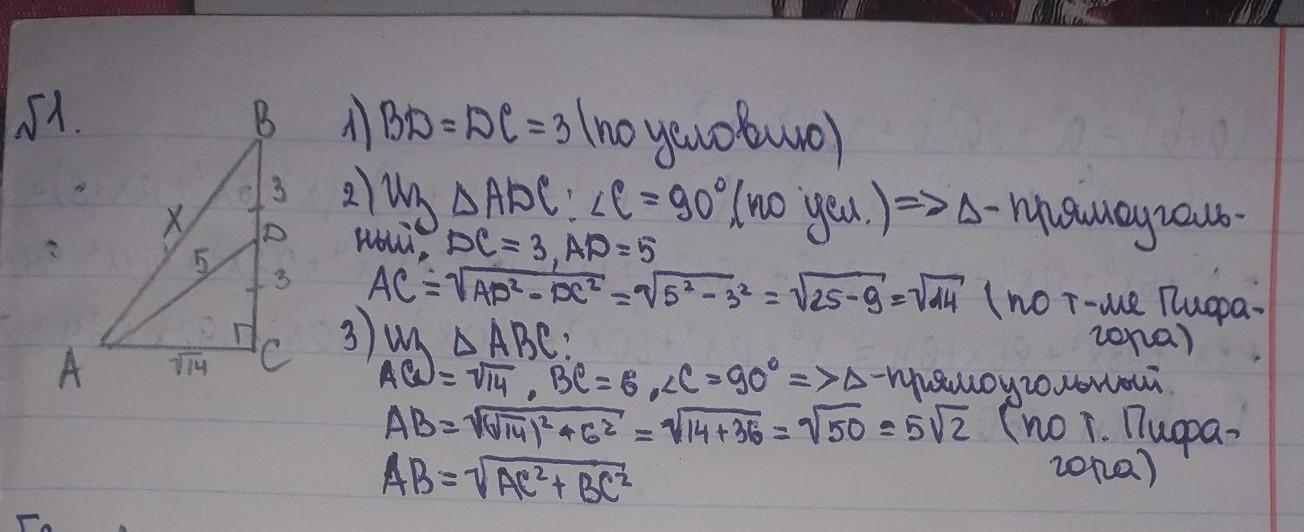 №1.
B
3
D
X
5
3
A
√14
C
1) BD = DC = 3 (по условию)
2) Из △ADC: ∠C = 90° (по усл.) => △-прямоуголь-
ный, DC = 3, AD = 5
AC = √AD² - DC² = √5² - 3² = √25 - 9 = √14 (по т-ме Пифа-
гора)
3) Из △ABC:
AC = √14, BC = 6, ∠C = 90° => △-прямоугольный
AB = √(√14)² + 6² = √14 + 36 = √50 = 5√2 (по т. Пифа-
гора)
AB = √AC² + BC²